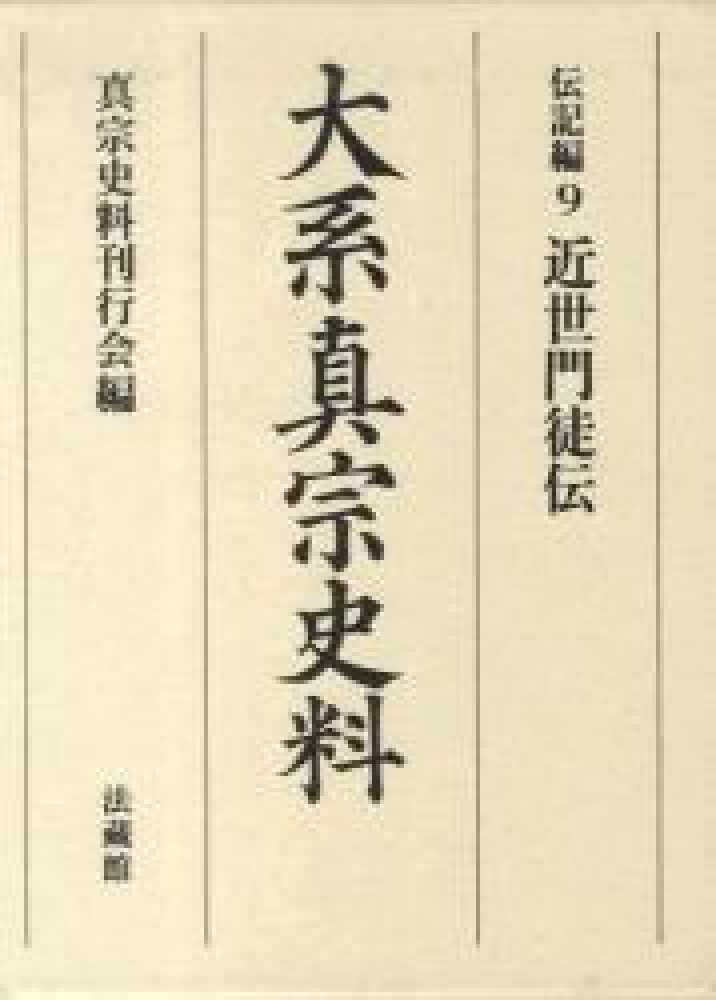 伝記編 9 近世門徒伝
大系真宗史料
真宗史料刊行会編
法藏館